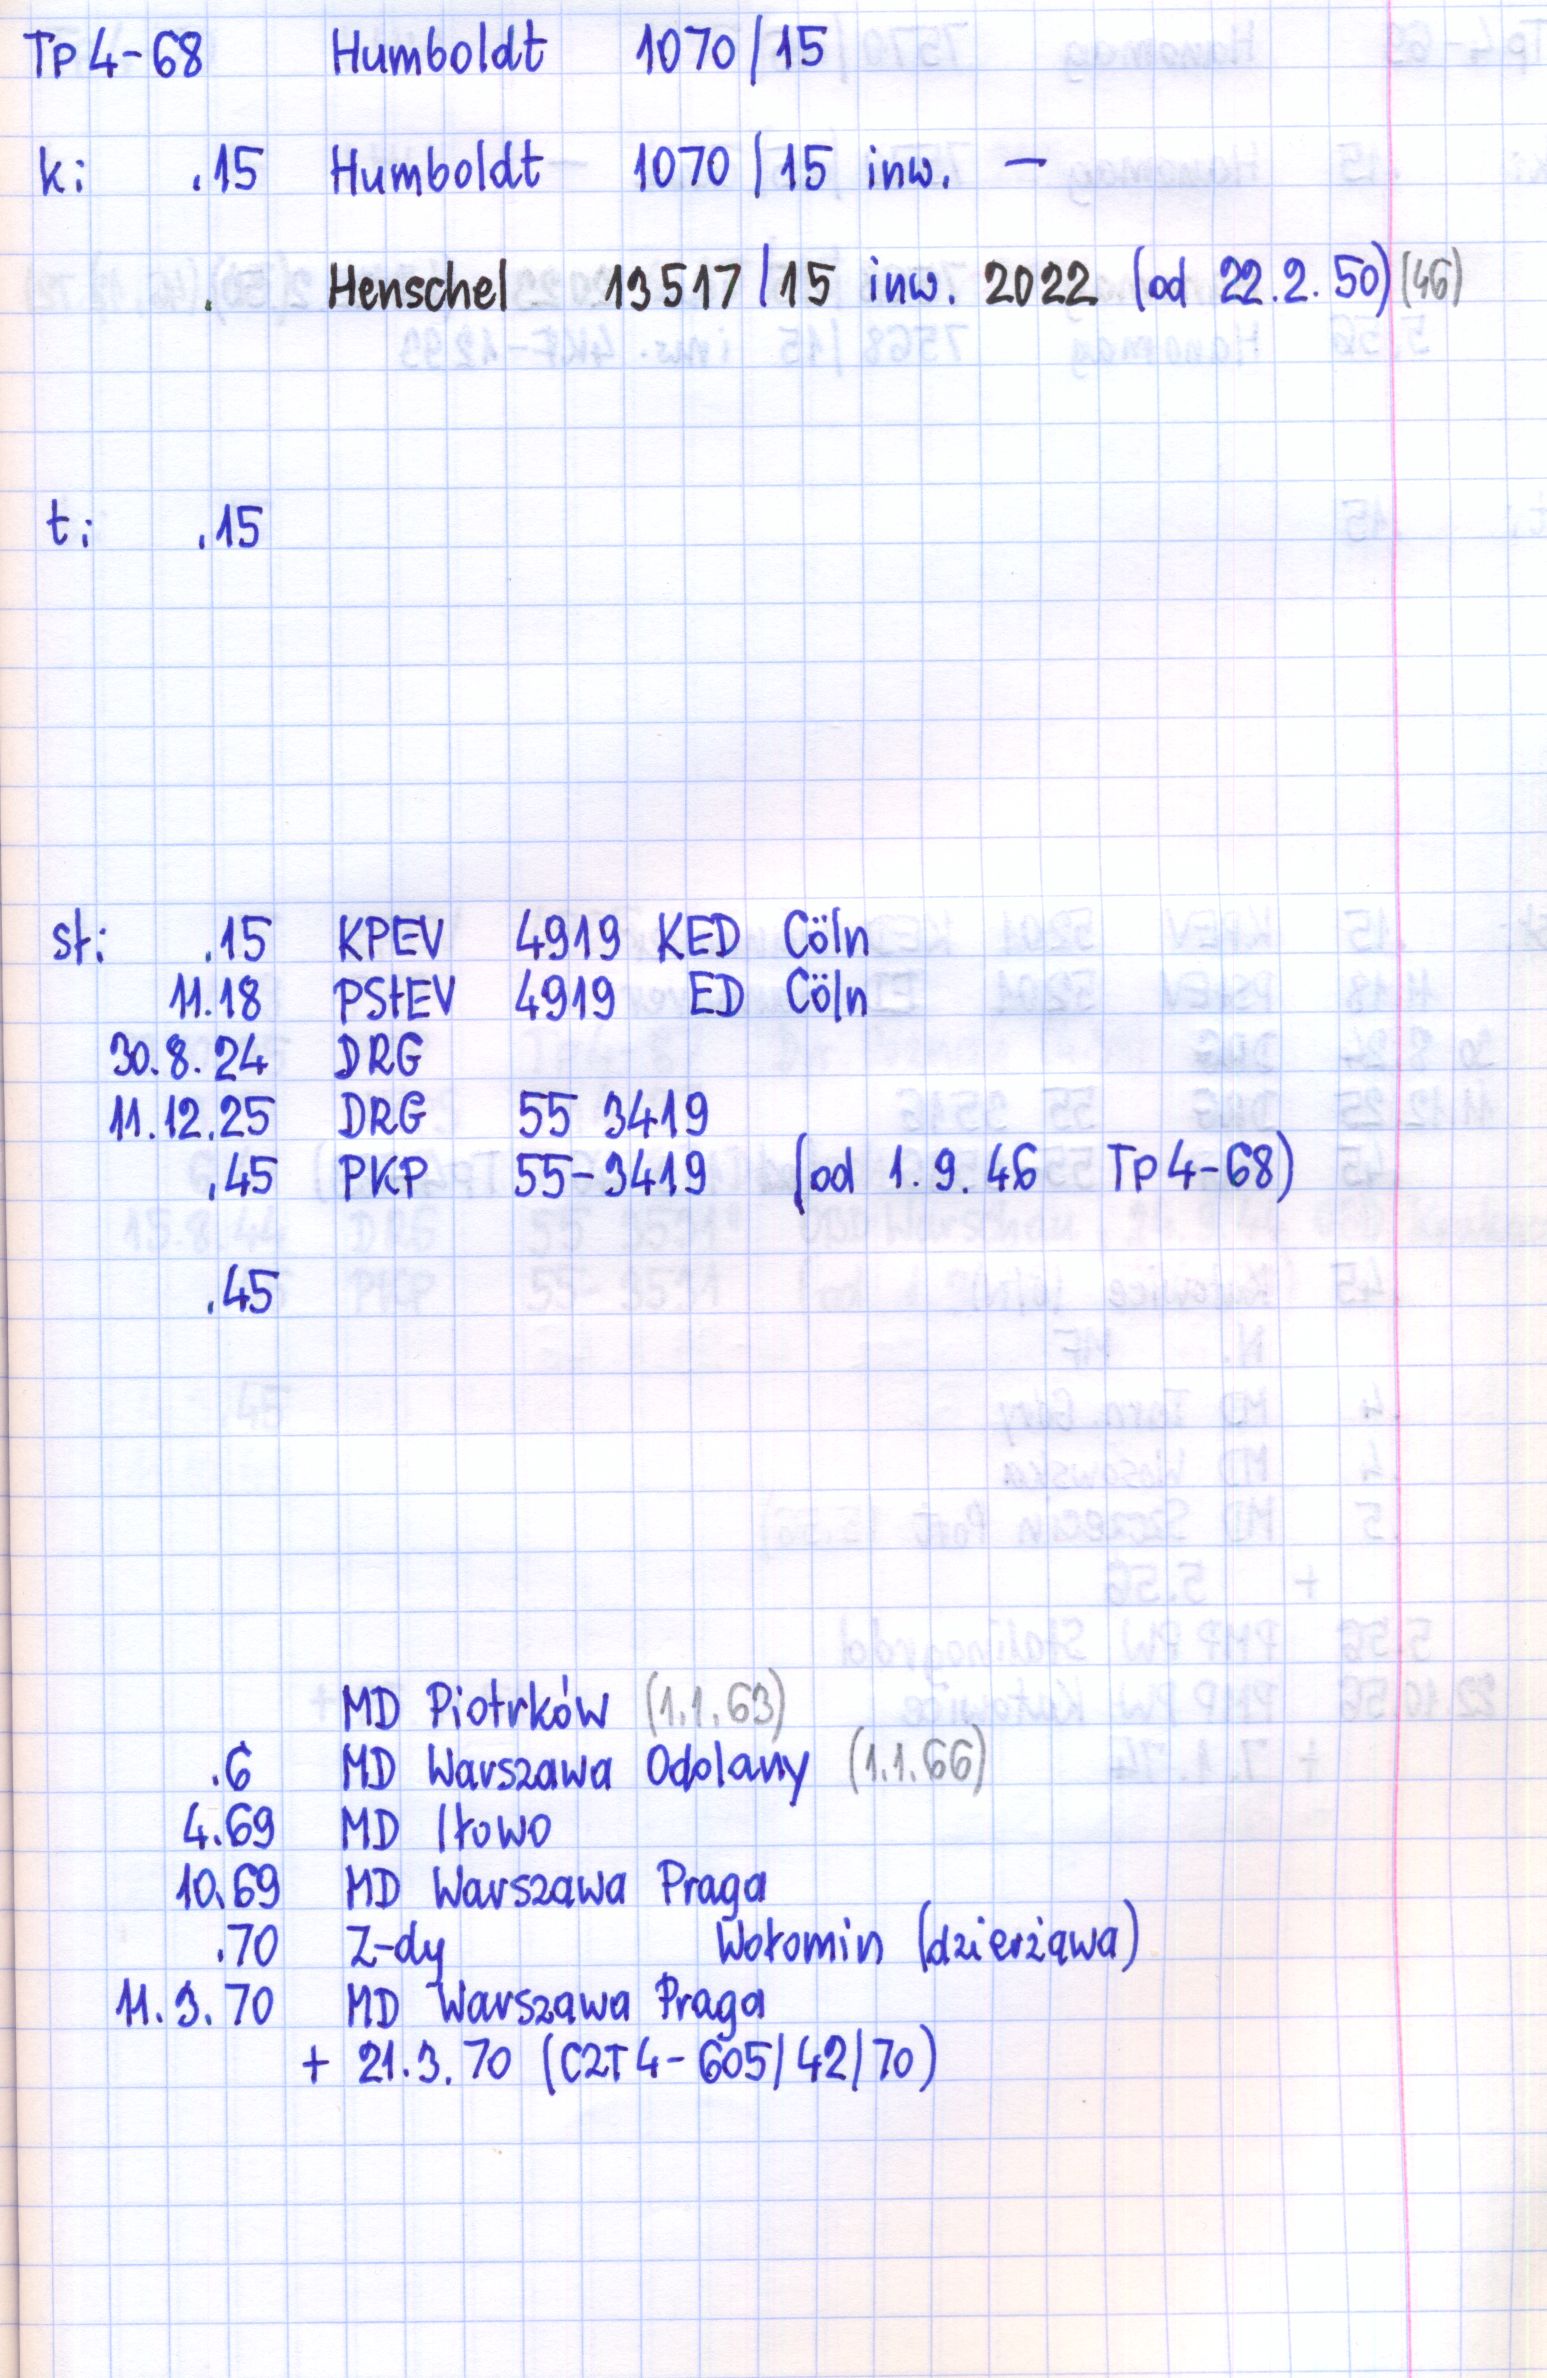 Tp4-68 Humboldt 1070/15
k: .15 Humboldt 1070/15 inw. –
. Henschel 13517/15 inw. 2022 (od 22.2.50) (46)
t: .15
sł: .15 KPEV 4919 KED Cöln
11.18 PStEV 4919 ED Cöln
30.8.24 DRG
11.12.25 DRG 55 3419
.45 PKP 55-3419 (od 1.9.46 Tp4-68)
.45
MD Piotrków (1.1.63)
.6 MD Warszawa Odolany (1.1.66)
4.69 MD Iłowo
10.69 MD Warszawa Praga
.70 Z-dy Wołomin (dzierżawa)
11.3.70 MD Warszawa Praga
+ 21.3.70 (CZT4-605/42/70)